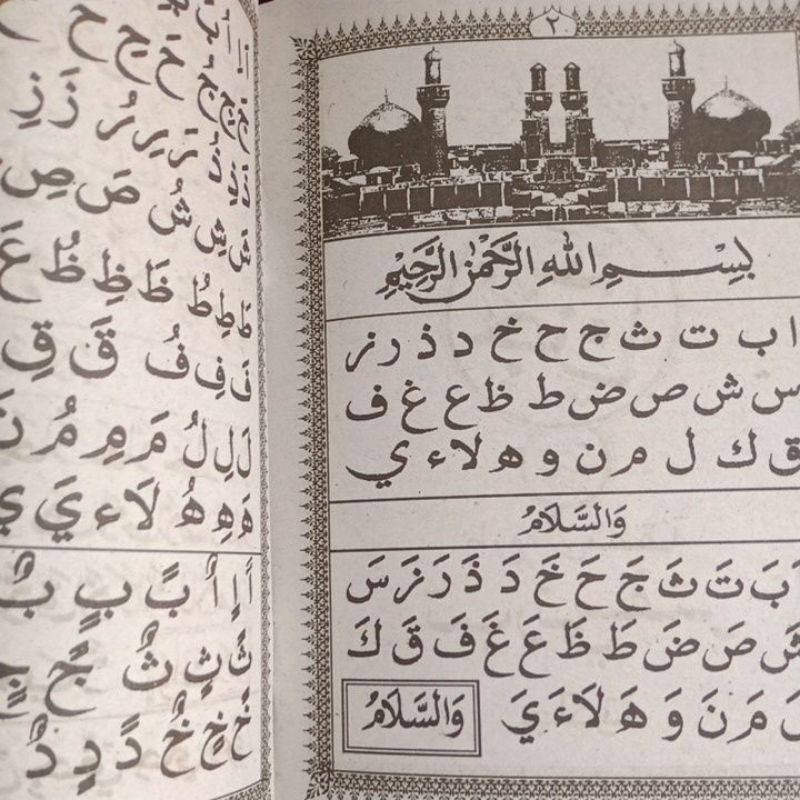 ٢
بِسْمِ اللهِ الرَّحْمٰنِ الرَّحِيْمِ
ا ب ت ث ج ح خ د ذ ر ز
س ش ص ض ط ظ ع غ ف
ق ك ل م ن و ه لا ء ي
وَالسَّلَامُ
اَ بَ تَ ثَ جَ حَ خَ دَ ذَ رَ زَ سَ
شَ صَ ضَ طَ ظَ عَ غَ فَ قَ كَ
لَ مَ نَ وَ هَ لَا ءَ يَ
وَالسَّلَامُ
ذَ ذِ ذُ رَ رِ رُ زَ زِ
شَ شِ شُ صَ صِ
طَ طِ طُ ظَ ظِ ظُ عَ
فَ فِ فُ قَ قِ
لَ لِ لُ مَ مِ مُ نَ
هَ هِ هُ لَا ء يَ يِ
اً اٍ اٌ بً بٍ بٌ
ثً ثٍ ثٌ جً جٍ
خً خٍ خٌ دً دٍ دٌ